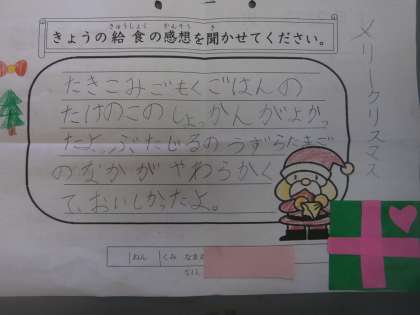 きょうの給食の感想を聞かせてください。
メリークリスマス
たきこみごもくごはんの
たけのこのしょっかんがよかっ
たよ。ぶたじるのうずらたまご
のなかがやわらかく
て、おいしかったよ。
ねん くみ なまえ